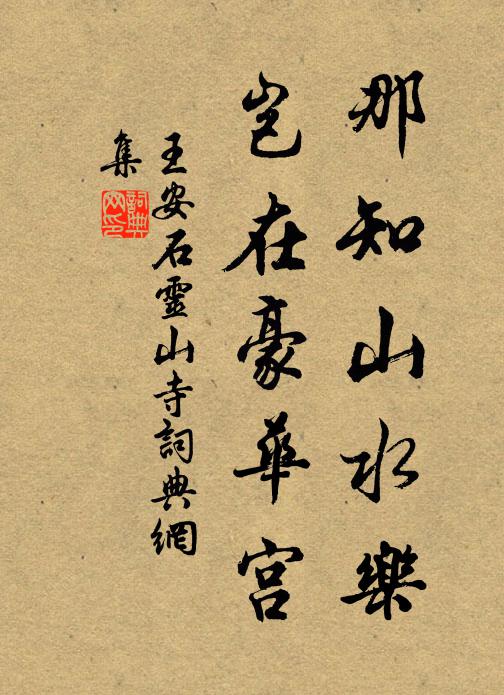 那知山水樂
豈在豪華宮
王安石靈山寺詞典網
集
詞典
网印